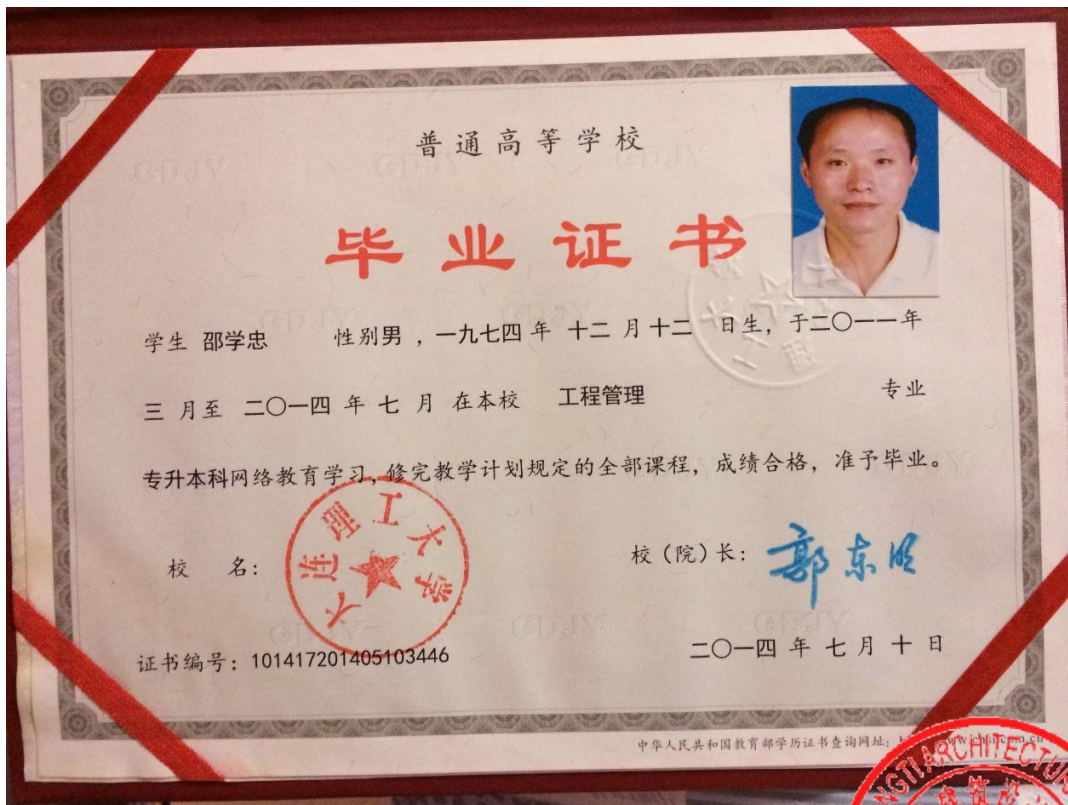 普通高等学校
毕业证书
学生 邵学忠 性别男，一九七四年 十二月十二 日生，于二〇一一年
三月至 二〇一四年七月在本校 工程管理 专业
专升本科网络教育学习，修完教学计划规定的全部课程，成绩合格，准予毕业。
大连理工大学
校 名：
校（院）长：郭东明
证书编号：101417201405103446
二〇一四年七月十日
中华人民共和国教育部学历证书查询网址：
ARCHITECTU